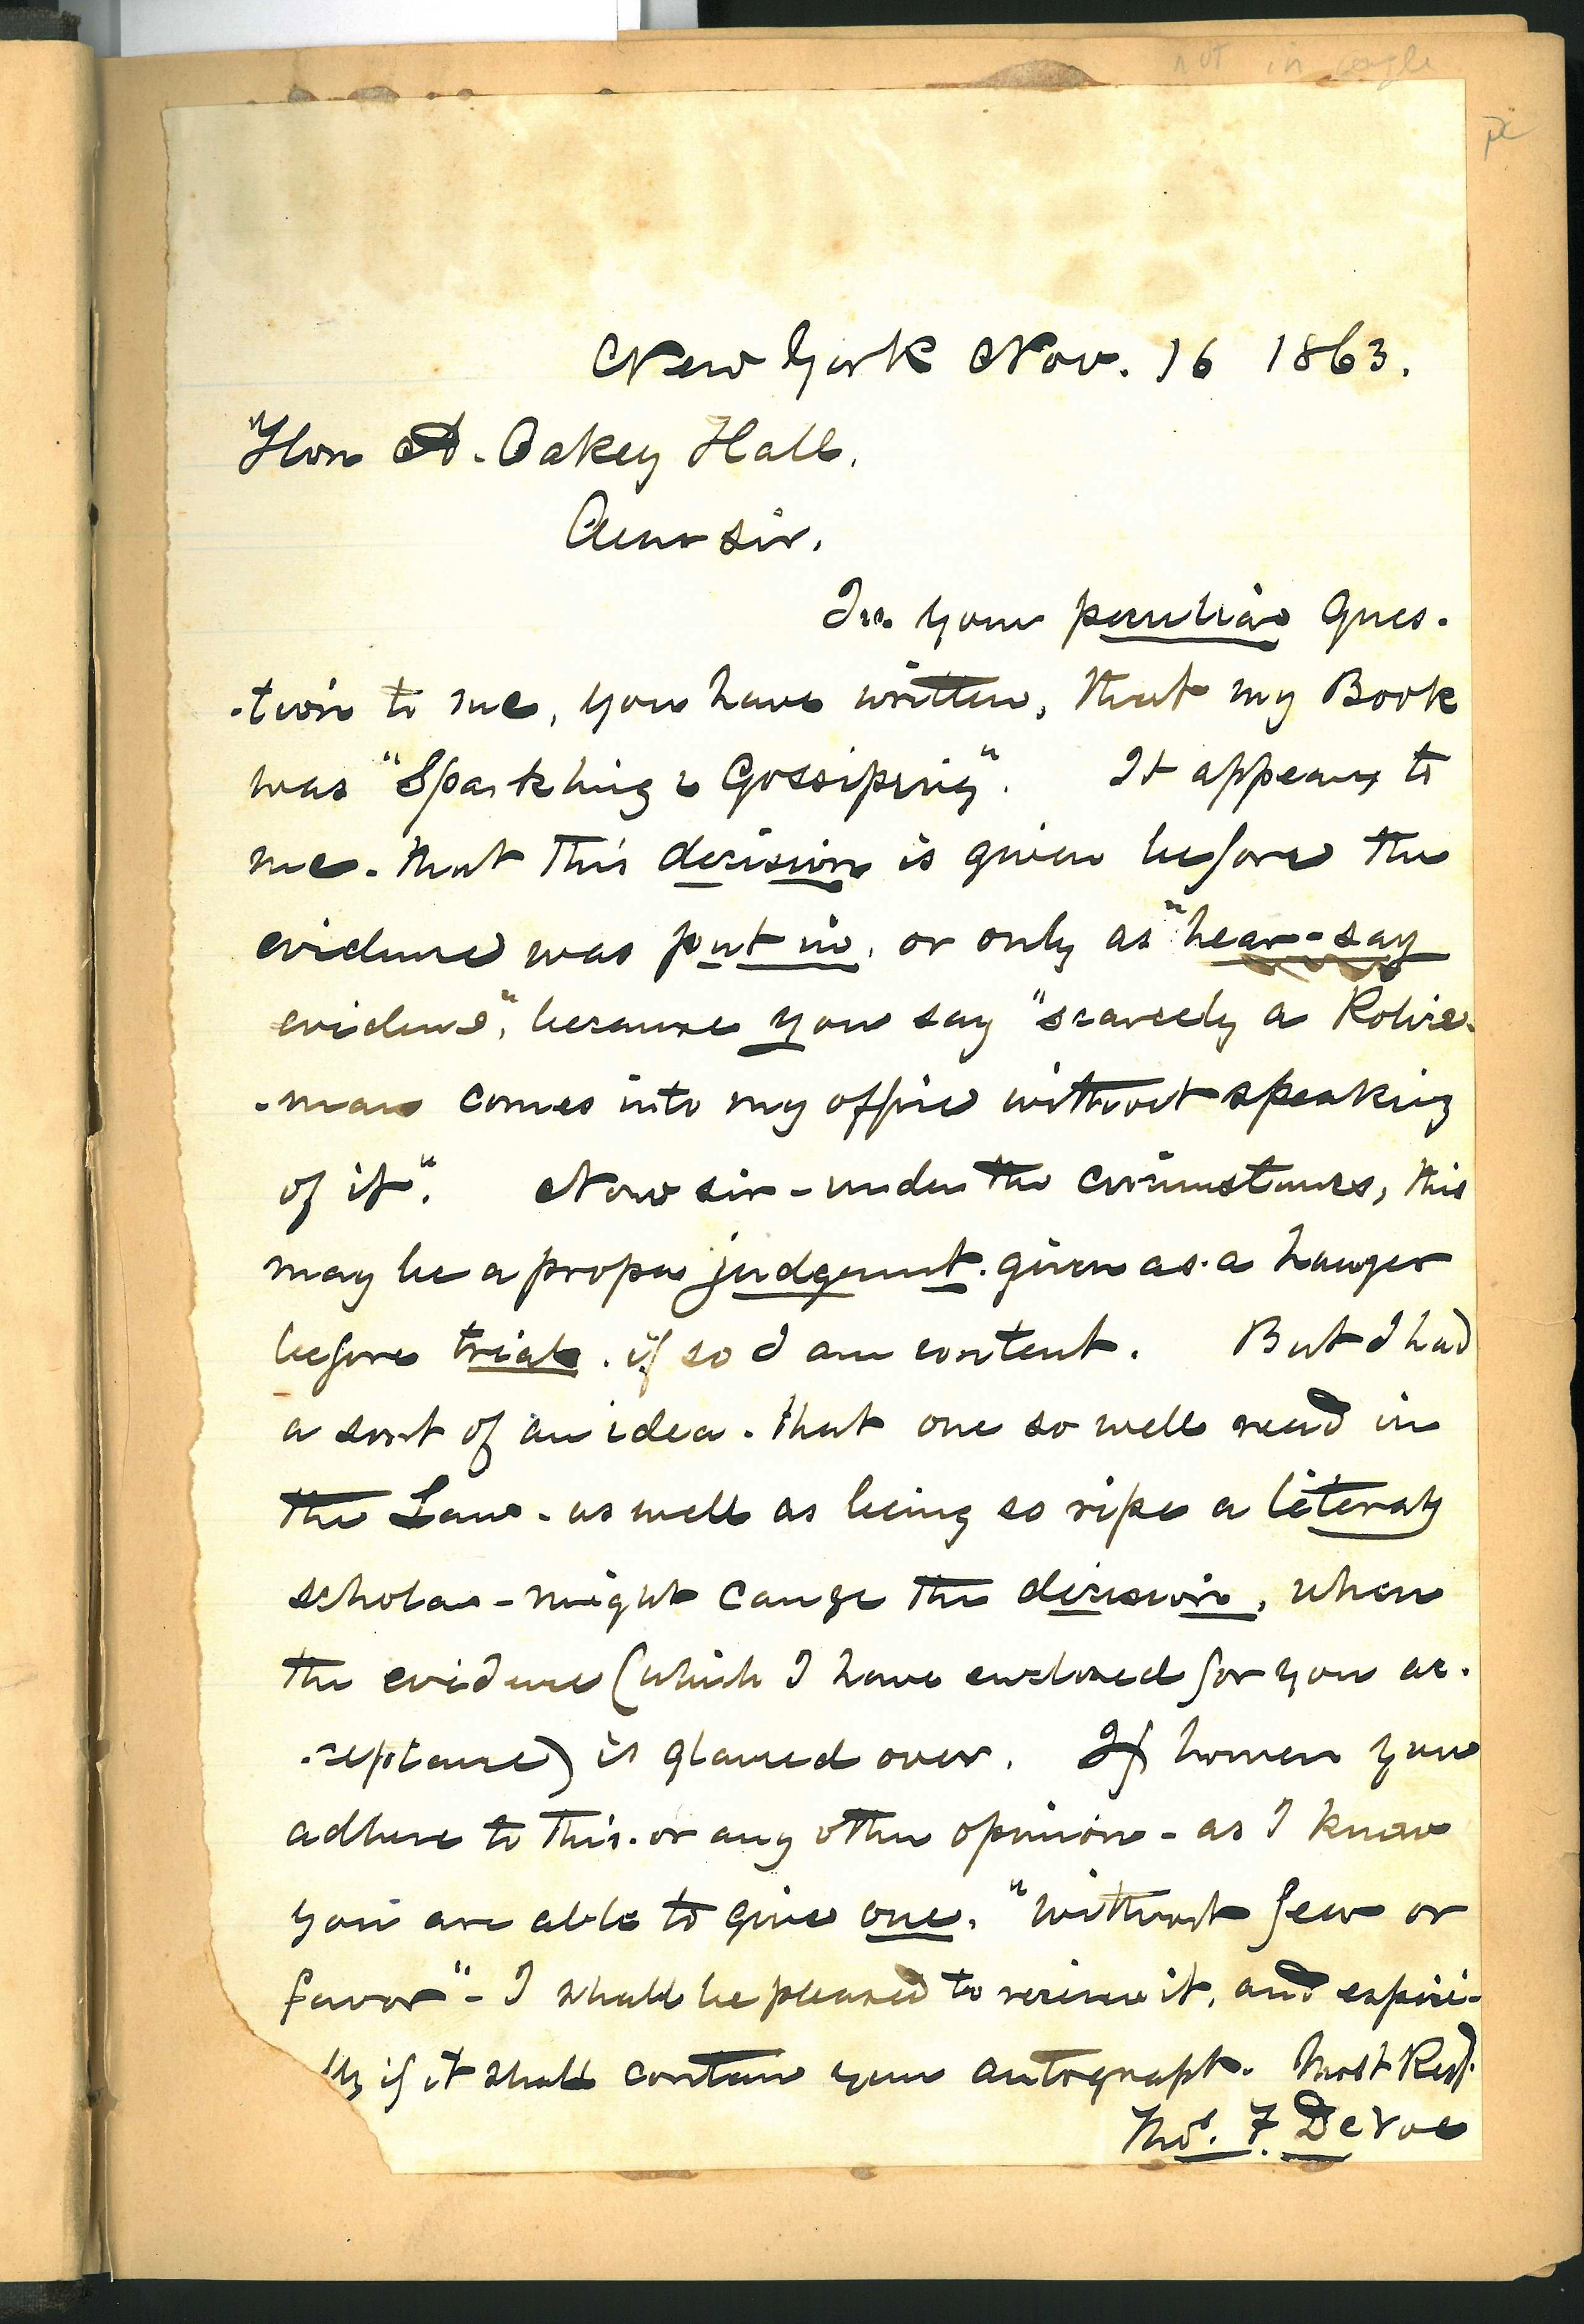 not in
New York Nov. 16 1863.
Hon A. Oakey Hall.
Dear sir.
In your peculiar Ques-
-tion to me, you have written, that my Book
was "Sparkling & Gossiping". It appears to
me. that this decision is given before the
evidence was put in, or only as "hear-say
evidence", because you say "scarcely a Police-
-man comes into my office without speaking
of it". Now sir - under the circumstances, this
may be a proper judgment. given as a lawyer
before trial. if so I am content. But I had
a sort of an idea. that one so well read in
the Law - as well as being so ripe a literary
scholar - might cange the decision, when
the evidence (which I have enclosed for you ac-
-ceptance) is glanced over. If however you
adhere to this. or any other opinion - as I know
you are able to give one, "without fear or
favor" - I shall be pleased to receive it, and especi-
lly if it shall contain your autograph. Most Resp.
Thos. F. De Voe